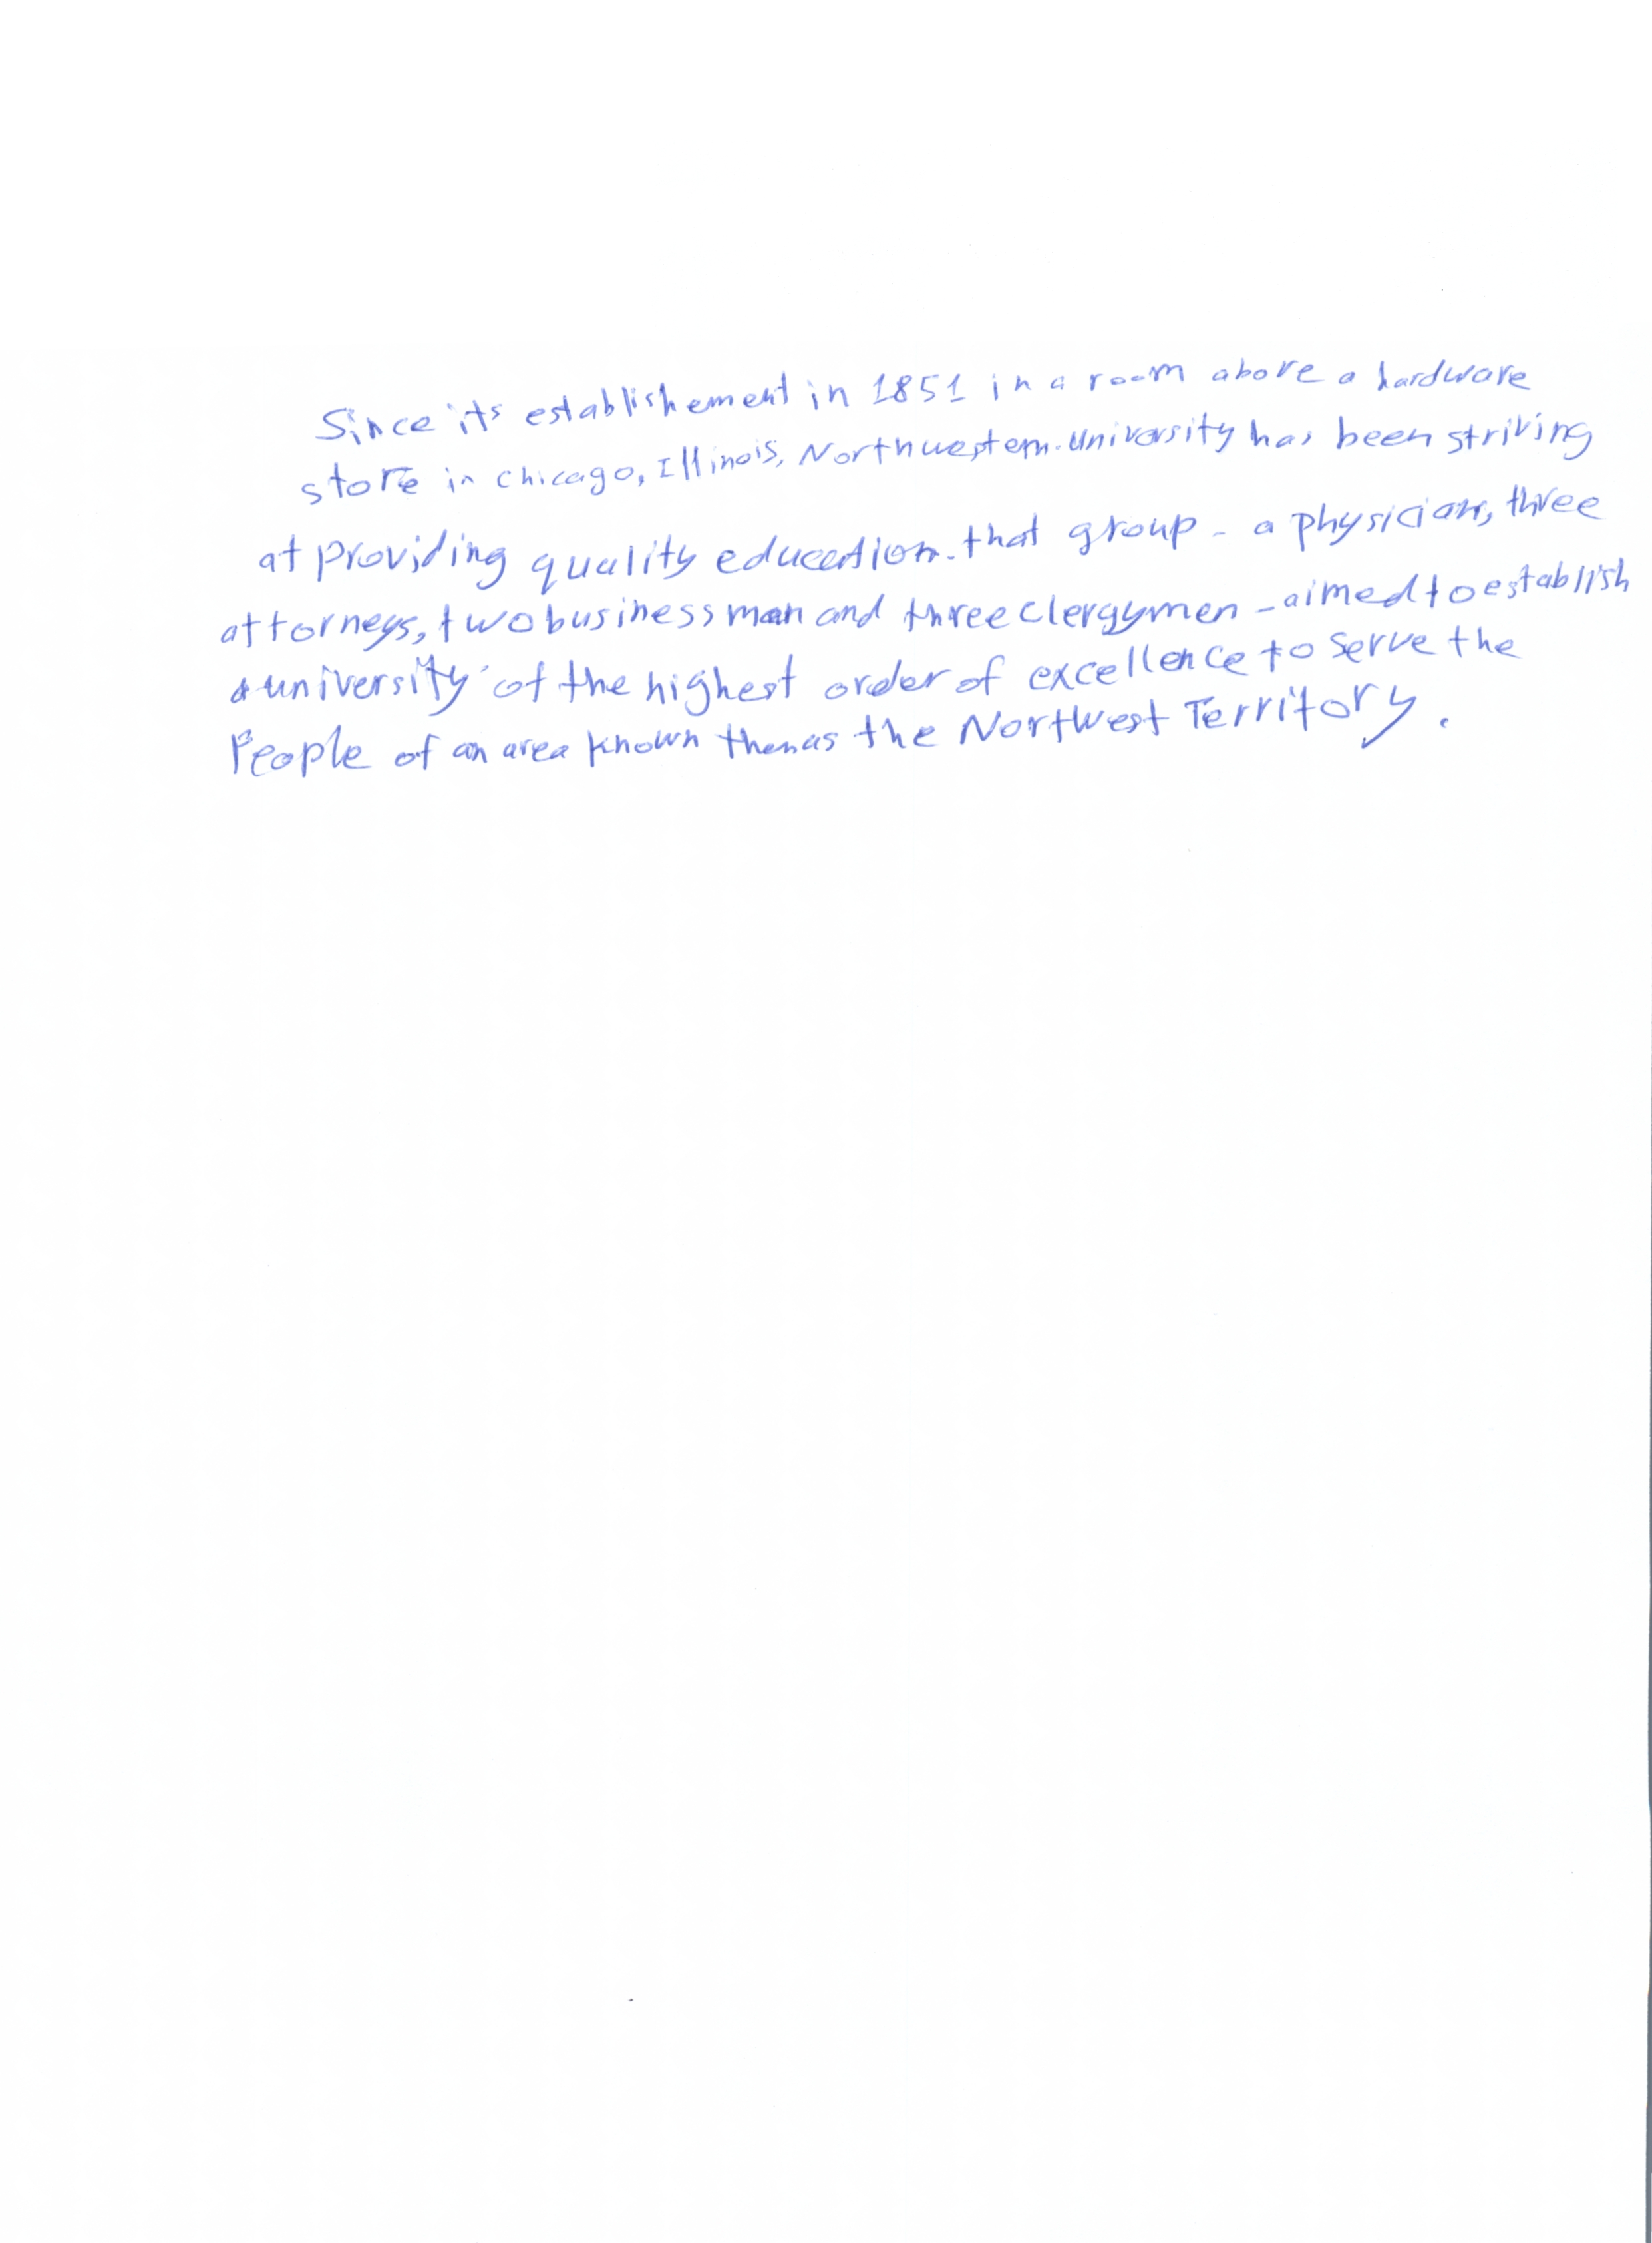 Since its establishement in 1851 in a room above a hardware
store in chicago, Illinois, Northwestern University has been striving
at providing quality education. that group - a physician, three
attorneys, two businessmen and three clergymen - aimed to establish
a university of the highest order of excellence to serve the
People of an area known then as the Nortwest Territory.